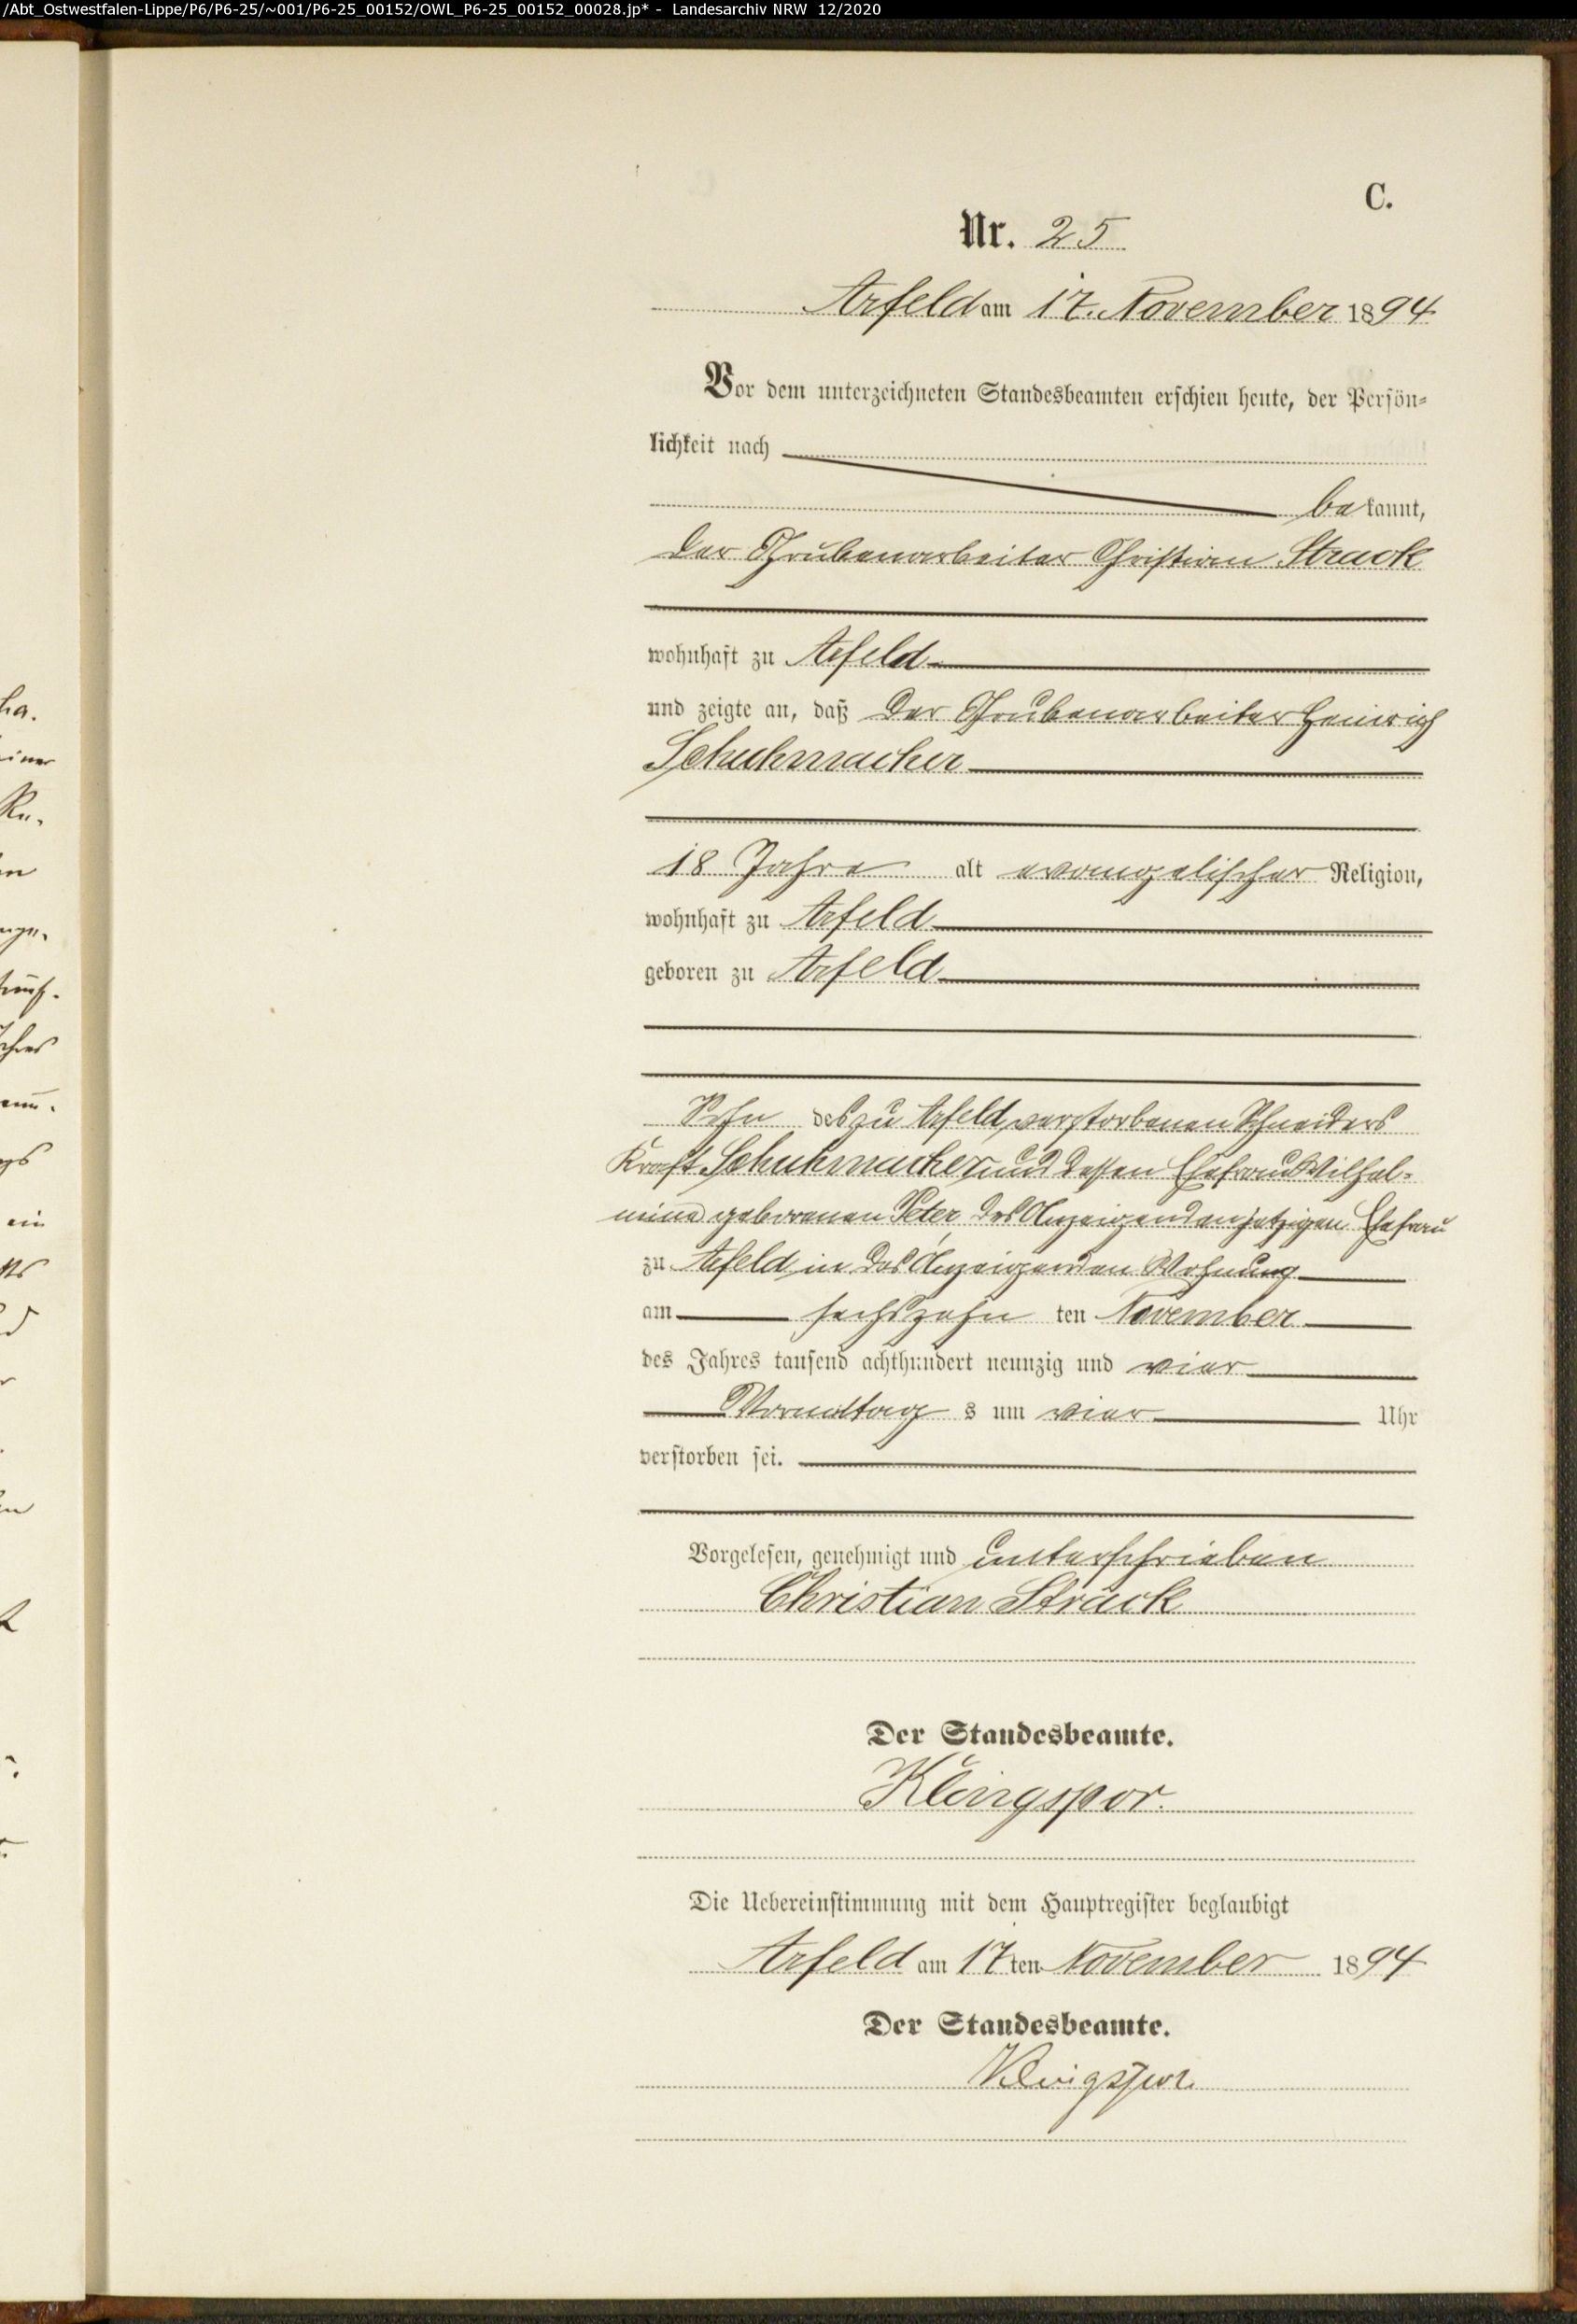 /Abt_Ostwestfalen-Lippe/P6/P6-25/~001/P6-25_00152/OWL_P6-25_00152_00028.jp* - Landesarchiv NRW 12/2020
C.
Nr. 25
Arfeld am 17. November 1894
Vor dem unterzeichneten Standesbeamten erschien heute, der Persön-
lichkeit nach
bekannt,
der Grubenarbeiter Christian Strack
wohnhaft zu Arfeld
und zeigte an, daß der Grubenarbeiter Heinrich
Schuhmacher
18 Jahre alt evangelischer Religion,
wohnhaft zu Arfeld
geboren zu Arfeld
Sohn des zu Arfeld verstorbenen Schneiders
Kraft Schuhmacher und dessen Ehefrau Wilhel-
mine geborenen Peter, des Anzeigenden jetzigen Ehefrau
zu Arfeld in des Anzeigenden Wohnung
am sechszehn ten November
des Jahres tausend achthundert neunzig und vier
Vormittag s um vier Uhr
verstorben sei.
Vorgelesen, genehmigt und unterschrieben
Christian Strack
Der Standesbeamte.
Klingspor.
Die Uebereinstimmung mit dem Hauptregister beglaubigt
Arfeld am 17ten November 1894
Der Standesbeamte.
Klingspor.